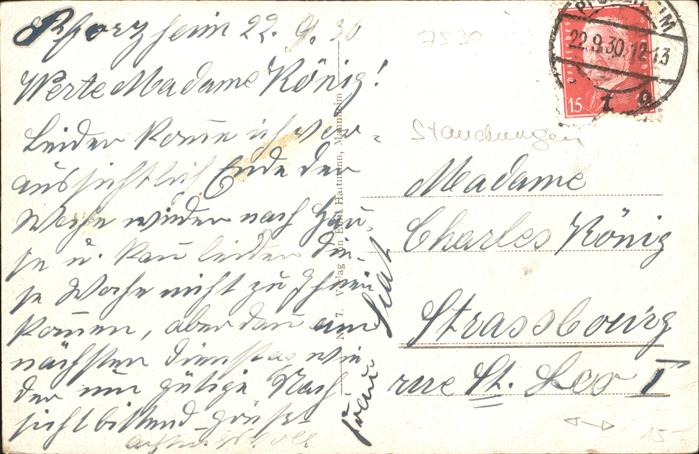 Pforzheim 22.9.30
Werte Madame König!
Leider komme ich vor-
aussichtlich Ende der
Woche wieder nach Hau-
se u. kau leider die-
se Woche nicht zu Ihnen
kommen, aber dan am
nächsten Dienstag wie-
der um gütige Nach
sichtbittend grüßt
Frau
7530
22.9.30.12-13
15
Staudungen
Madame
Charles König
Strassbourg
rue St. Leo I
Verlag von Hartmann, Mannheim
15